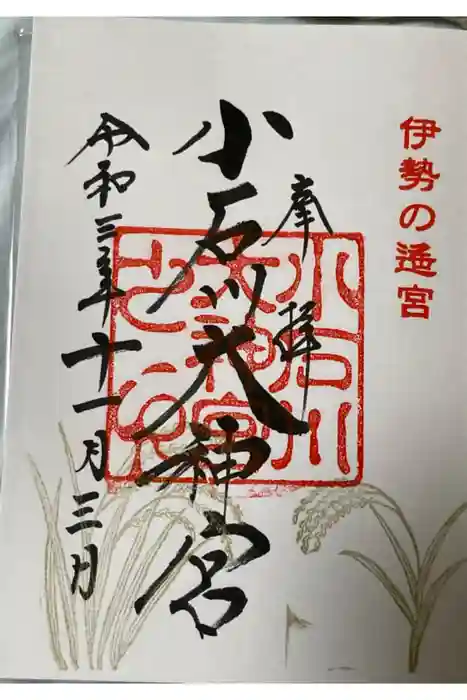 伊勢の遙宮
奉拝
小石川大神宮
令和三年十一月三日
小石川
大神宮
之印